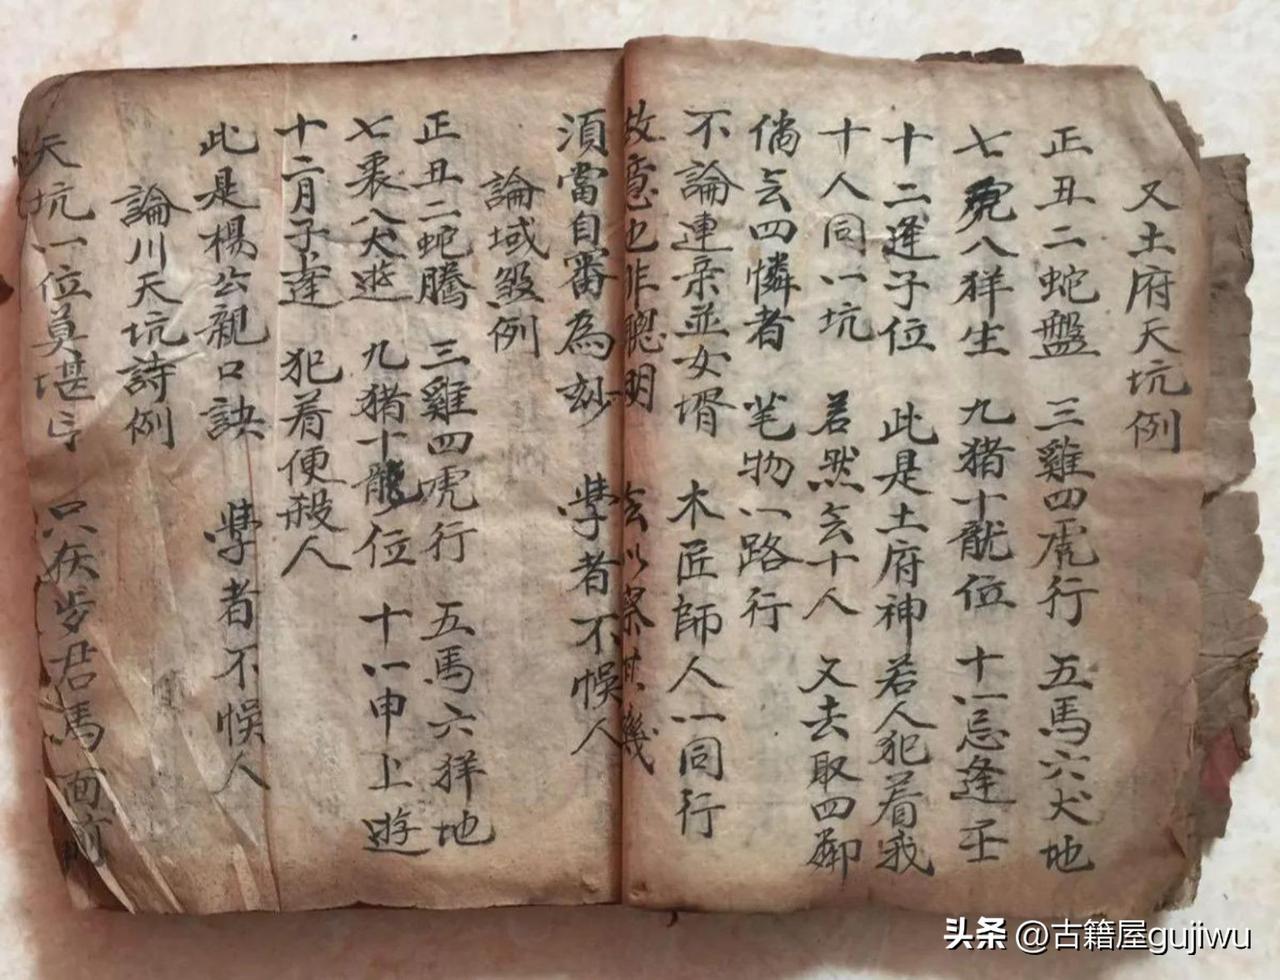 又土府天坑例
正丑二蛇盤 三雞四虎行 五馬六犬地
七兎八羊生 九猪十龍位 十一忌逢壬
十二逢子位 此是土府神 若人犯着我
十人同一坑 若然去十人 又去取四鄰
倘去四憐者 笔物一路行
不論連亲並女壻 木匠師人一同行
故意也非聰明 去以察其幾
須當自審為妙 學者不悞人
論域殺例
正丑二蛇騰 三雞四虎行 五馬六羊地
七
八犬遊 九猪十龍位 十一申上遊
十二月子逢 犯着便殺人
此是楊公親口訣 學者不悞人
論川天坑詩例
天坑一位莫堪 只在步君馬面前
头条 @古籍屋gujiwu